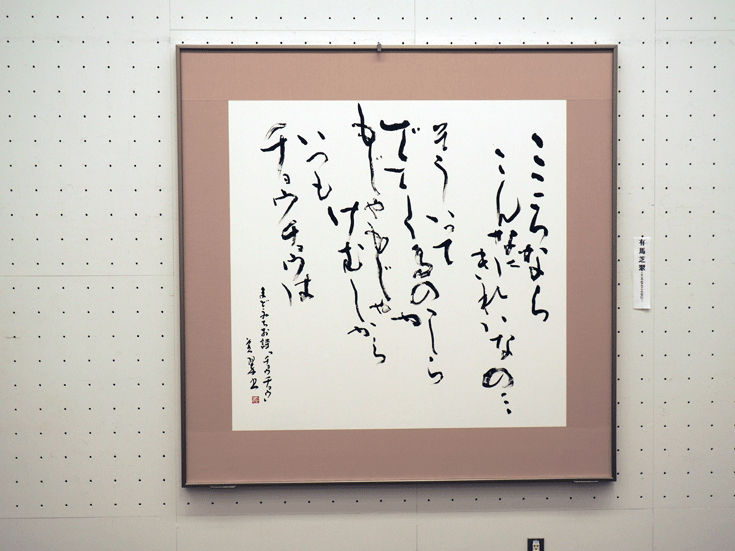 こころなら
こんなに
きれいなの…
そういって
でてくるのかしら
もじゃもじゃ
けむしから
いつも
チョウチョウは
まどみちお詩「チョウチョウ」
芝翠
有馬芝翠